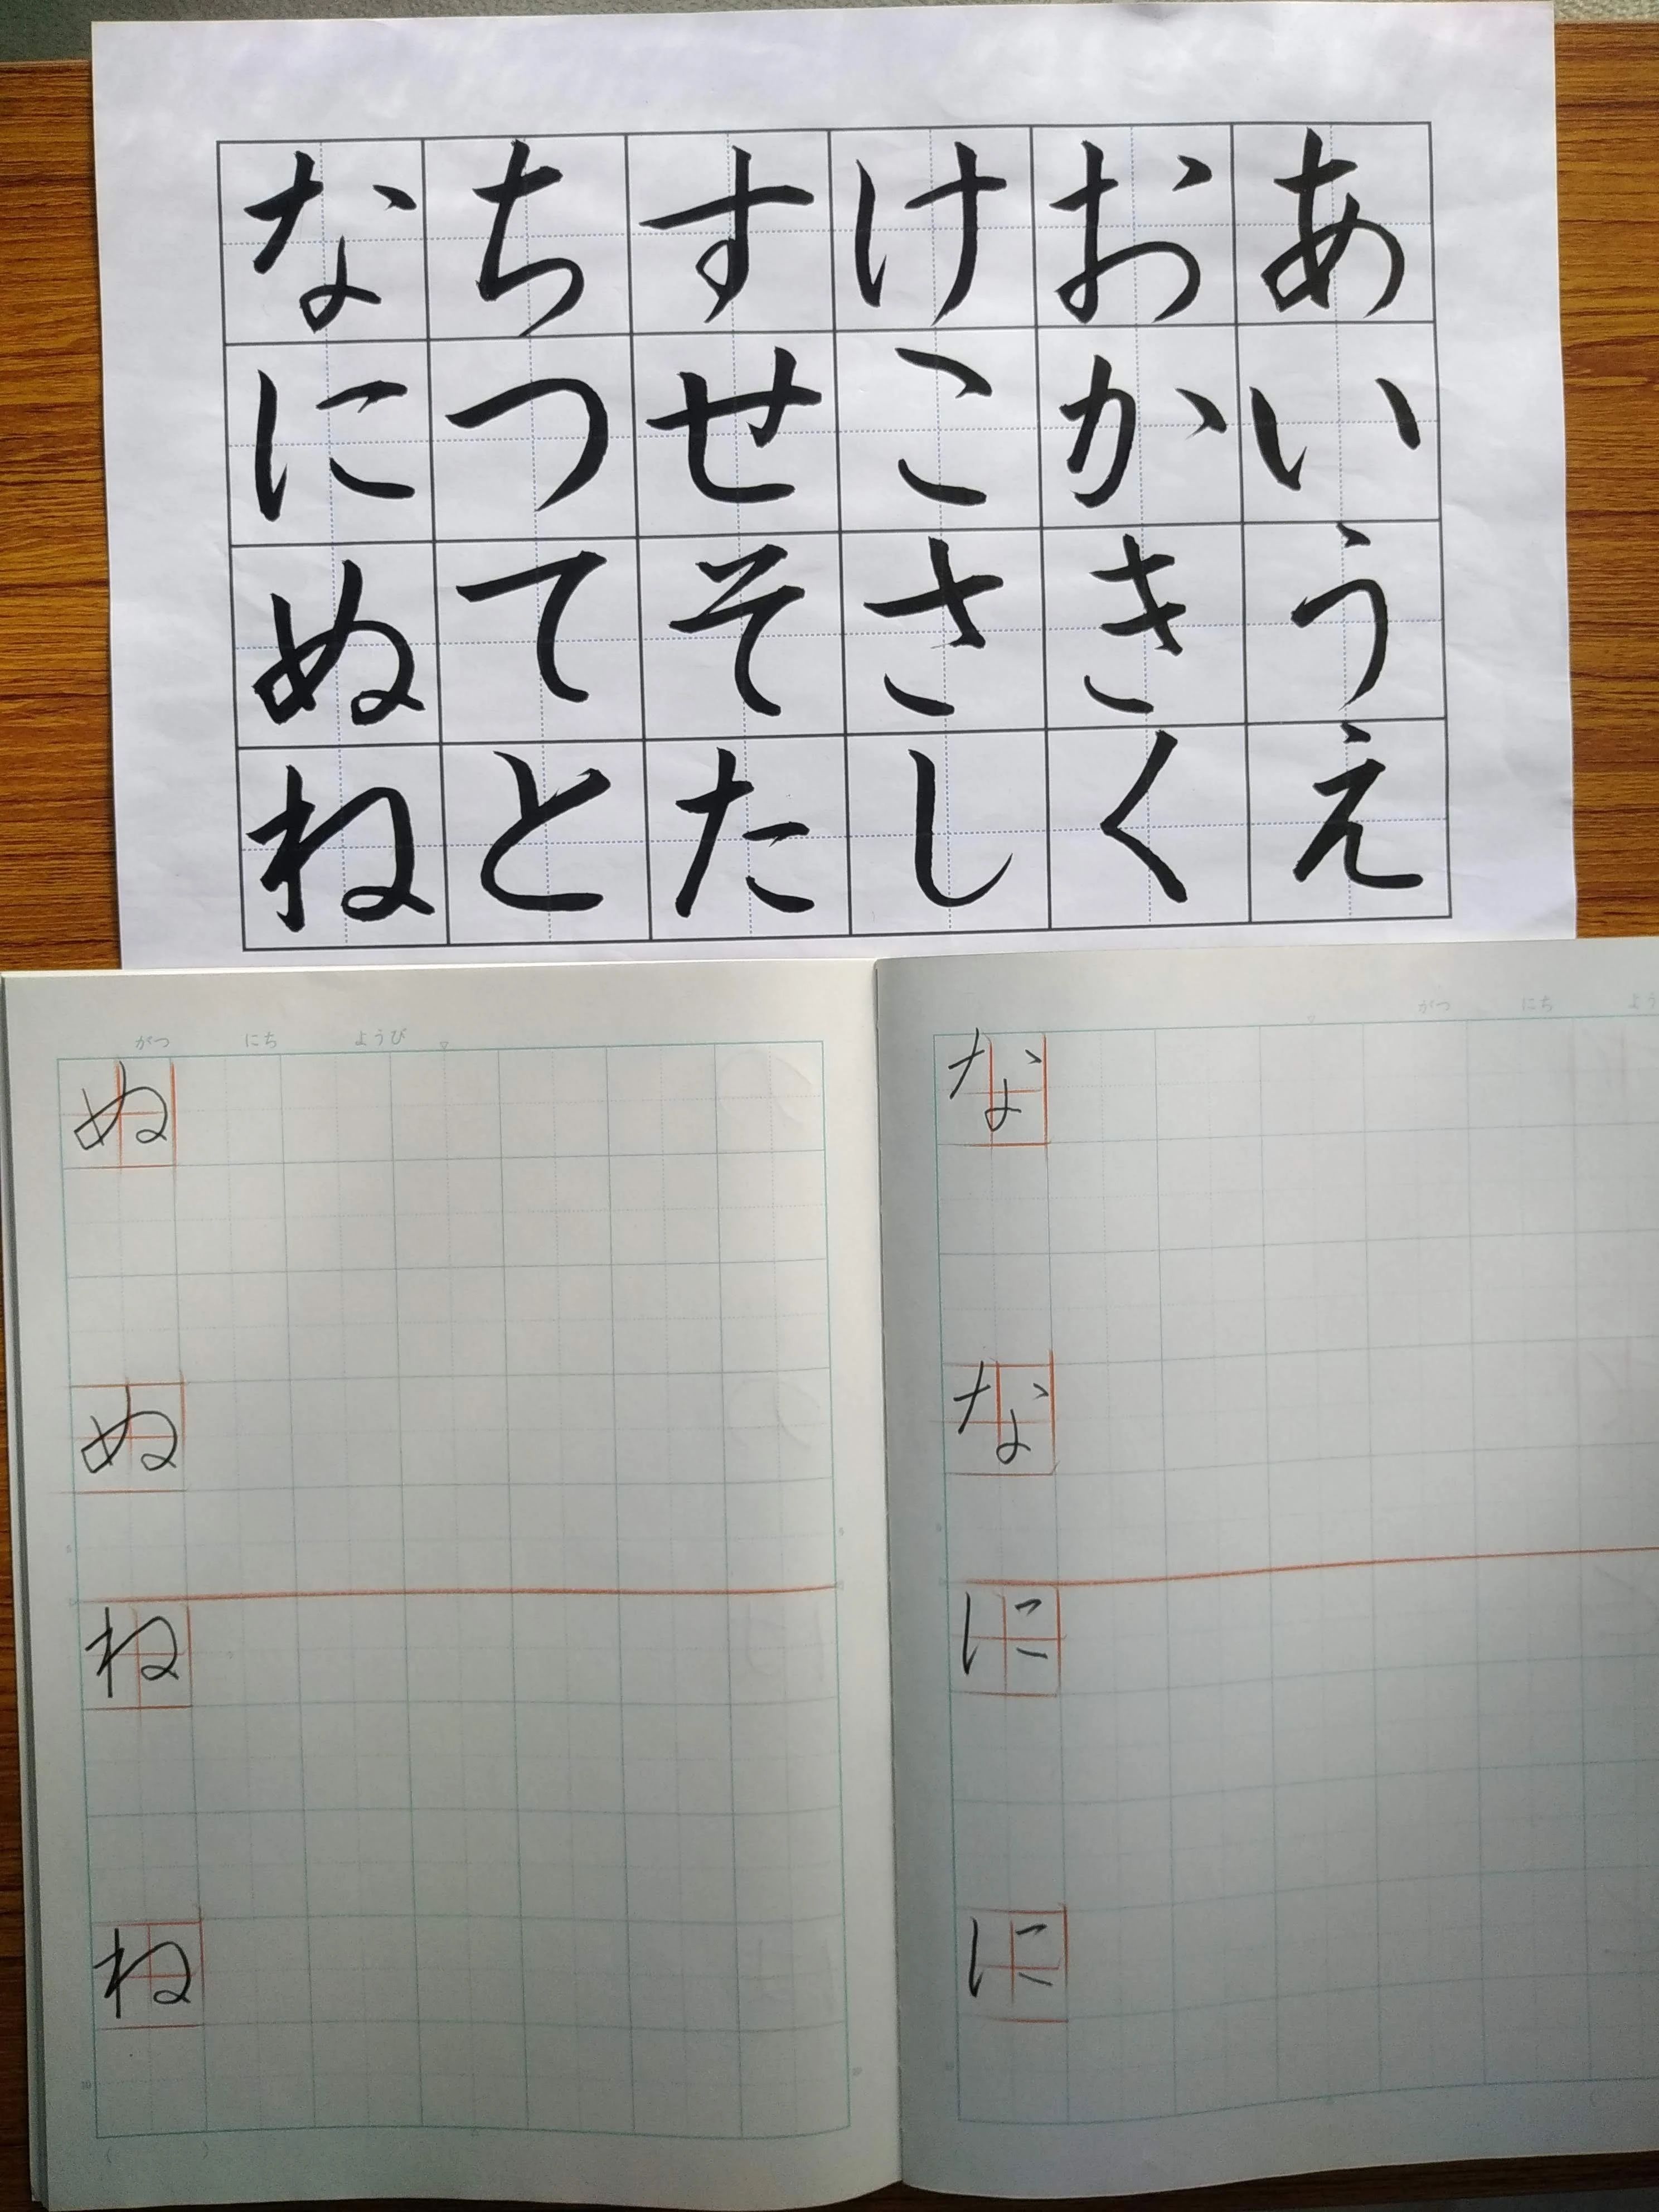 あいうえ
おかきく
けこさし
すせそた
ちつてと
なにぬね
がつ にち よう
な
な
に
に
がつ にち ようび
ぬ
ぬ
ね
ね